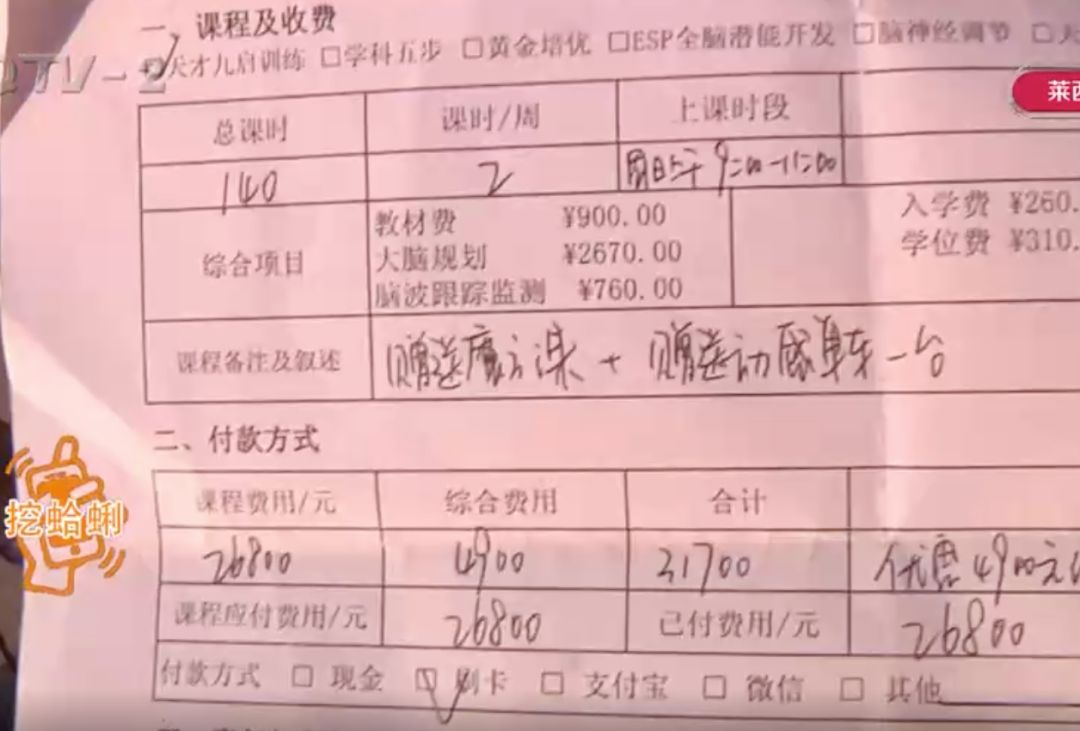 一、课程及收费
QTV-2
天才儿启训练 □学科五步 □黄金培优 □ESP全脑潜能开发 □脑神经调节 □天
莱西
总课时 课时/周 上课时段
140 2 周日上午 9:00-11:00
综合项目
教材费 ¥900.00
大脑规划 ¥2670.00
脑波跟踪监测 ¥760.00
入学费 ¥260.
学位费 ¥310.
课程备注及叙述 赠送魔方课 + 赠送动感单车一台
二、付款方式
挖蛤蜊
课程费用/元 综合费用 合计
26800 4900 31700 优惠4900元
课程应付费用/元 26800 已付费用/元 26800
付款方式 □ 现金 ☑ 刷卡 □ 支付宝 □ 微信 □ 其他